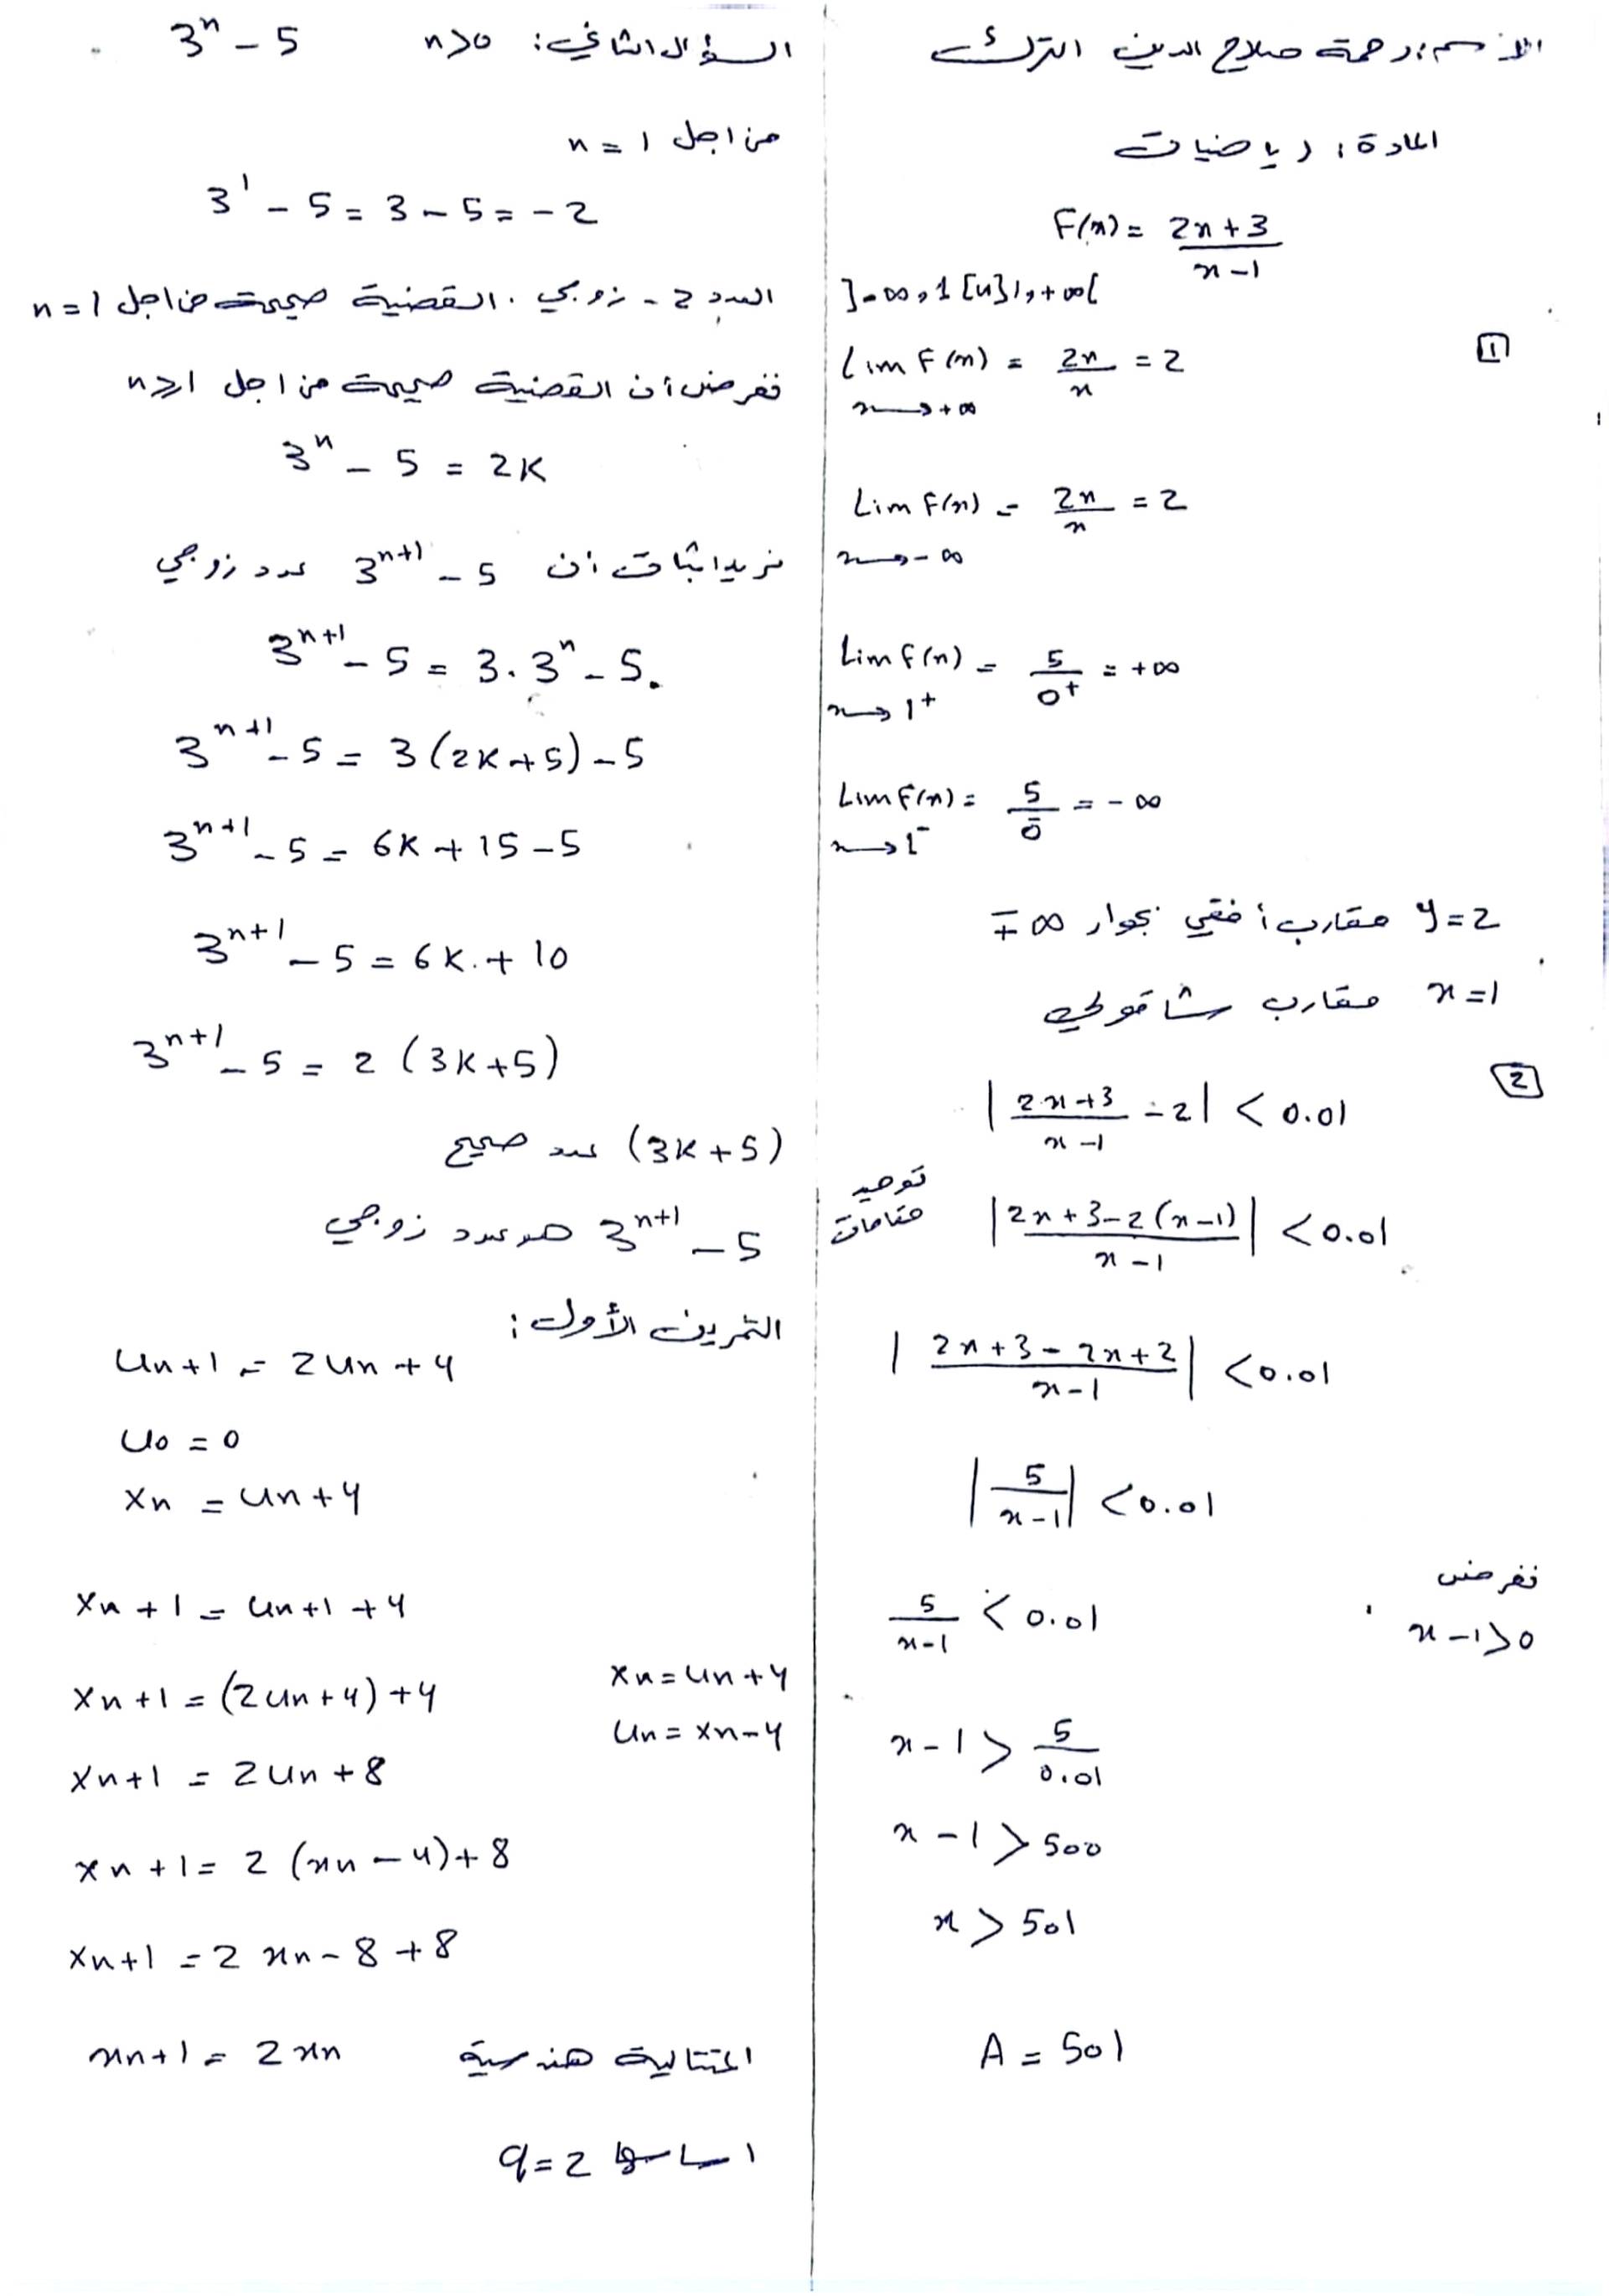 الاسم: رحمة صلاح الدين الترك
المادة: رياضيات
F(x) = (2x+3)/(x-1)
]-∞,1[u]1,+∞[
[1] Lim F(x) = 2x/x = 2
x→+∞
Lim F(x) = 2x/x = 2
x→-∞
Lim F(x) = 5/0⁺ = +∞
x→1⁺
Lim F(x) = 5/0⁻ = -∞
x→1⁻
y=2 مقارب أفقي بجوار ∓∞
x=1 مقارب شاقولي
[2] |(2x+3)/(x-1) - 2| < 0.01
توحيد مقامات |(2x+3-2(x-1))/(x-1)| < 0.01
|(2x+3-2x+2)/(x-1)| < 0.01
|5/(x-1)| < 0.01
نفرض
x-1>0
5/(x-1) < 0.01
x-1 > 5/0.01
x-1 > 500
x > 501
A = 501
السؤال الثاني: n>0 3ⁿ - 5
من اجل n = 1
3¹ - 5 = 3 - 5 = -2
العدد 2- زوجي. القضية صحيحة من اجل n=1
نفرض أن القضية صحيحة من اجل n≥1
3ⁿ - 5 = 2K
نريد اثبات أن 3ⁿ⁺¹ - 5 عدد زوجي
3ⁿ⁺¹ - 5 = 3.3ⁿ - 5.
3ⁿ⁺¹ - 5 = 3(2K+5) - 5
3ⁿ⁺¹ - 5 = 6K + 15 - 5
3ⁿ⁺¹ - 5 = 6K + 10
3ⁿ⁺¹ - 5 = 2(3K+5)
(3K+5) عدد صحيح
3ⁿ⁺¹ - 5 هو عدد زوجي
التمرين الأول:
Un+1 = 2Un + 4
U0 = 0
Xn = Un + 4
Xn+1 = Un+1 + 4
Xn+1 = (2Un+4) + 4
Xn = Un + 4
Un = Xn - 4
Xn+1 = 2Un + 8
Xn+1 = 2(xn - 4) + 8
Xn+1 = 2xn - 8 + 8
xn+1 = 2xn المتتالية هندسية
اساسها q=2